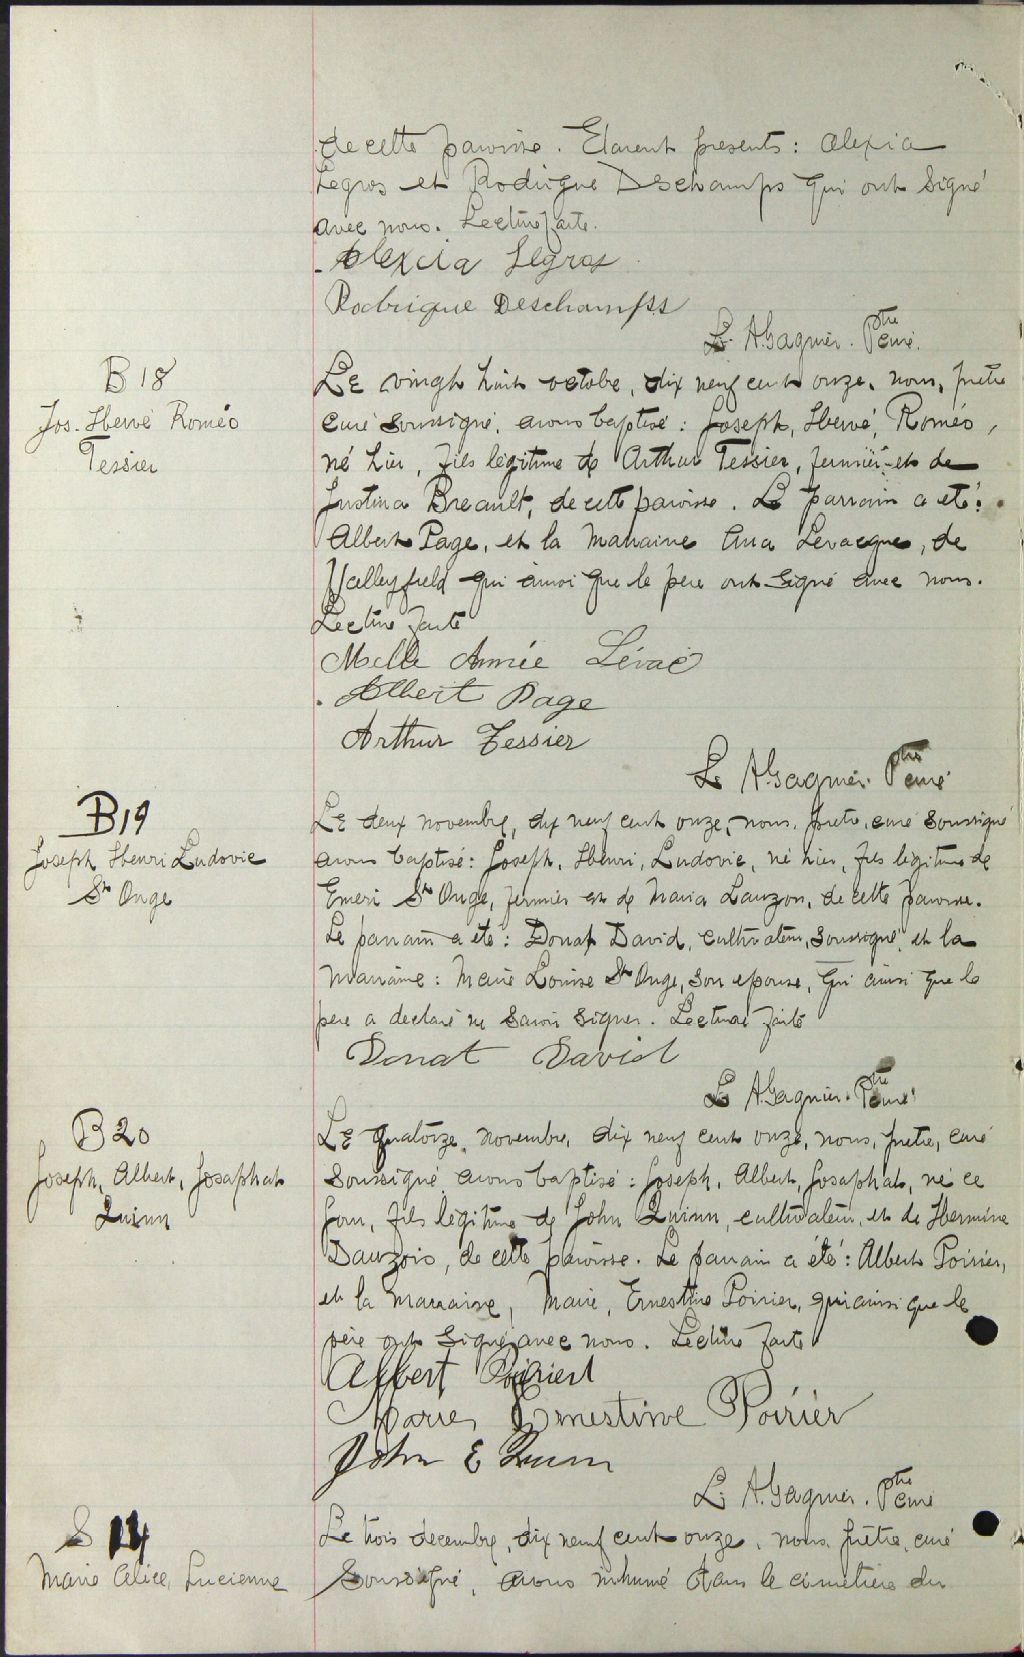 de cette paroisse. Etaient presents: Alexia
Legros et Rodrigue Deschamps qui ont signé
avec nous. Lecture faite.
Alexcia Legros
Rodrigue Deschamps
L. A. Gagnier. Ptre curé.
B 18
Jos. Hervé Roméo
Tessier
Le vingt huit octobe, dix neuf cent onze, nous, prêtre
curé soussigné, avons baptisé: Joseph, Hervé, Roméo,
né hier, fils légitime de Arthur Tessier, fermier et de
Justina Breault, de cette paroisse. Le parrain a été:
Albert Page, et la marraine Levacque, de
Valleyfield qui ainsi que le père ont signé avec nous.
Lecture faite
Melle Année Lévac
Albert Page
Arthur Tessier
L. A. Gagnier. Ptre curé
B 19
Joseph Henri Ludovic
St Onge
Le deux novembre, dix neuf cent onze, nous, prêtre, curé soussigné
avons baptisé: Joseph, Henri, Ludovic, né hier, fils légitime de
Emeri St Onge, fermier et de Maria Lauzon, de cette paroisse.
Le parrain a été: Donat David, cultivateur, soussigné, et la
marraine: Marie Louise St Onge, son epouse, qui ainsi que le
père a declaré ne savoir signer. Lecture faite
Donat David
L. A. Gagnier. Ptre curé
B 20
Joseph, Albert, Josaphat
Quinn
Le quatorze, novembre, dix neuf cent onze, nous, prêtre, curé
soussigné avons baptisé: Joseph, Albert, Josaphat, né ce
jour, fils légitime de John Quinn, cultivateur, et de Hermine
Dauzois, de cette paroisse. Le parrain a été: Albert Poirier,
et la marraine, Marie, Ernestine Poirier, qui ainsi que le
père ont signé avec nous. Lecture faite
Albert Poirier
Marie Ernestine Poirier
John E Quinn
L. A. Gagnier. Ptre curé
S 14
Marie Alice, Lucienne
Le trois decembre, dix neuf cent onze, nous, prêtre, curé
soussigné, avons inhumé dans le cimetière du